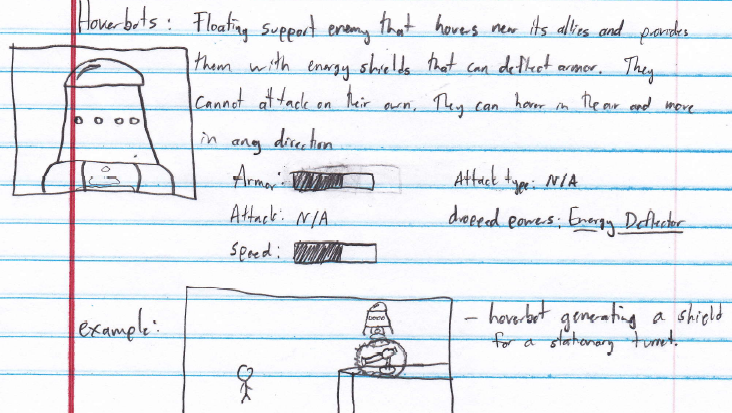 Hoverbots: Floating support enemy that hovers near its allies and provides
them with energy shields that can deflect armor. They
cannot attack on their own. They can hover in the air and move
in any direction
Armor:
Attack type: N/A
Attack: N/A
dropped powers: Energy Deflector
Speed:
example:
- hoverbot generating a shield
for a stationary turret.